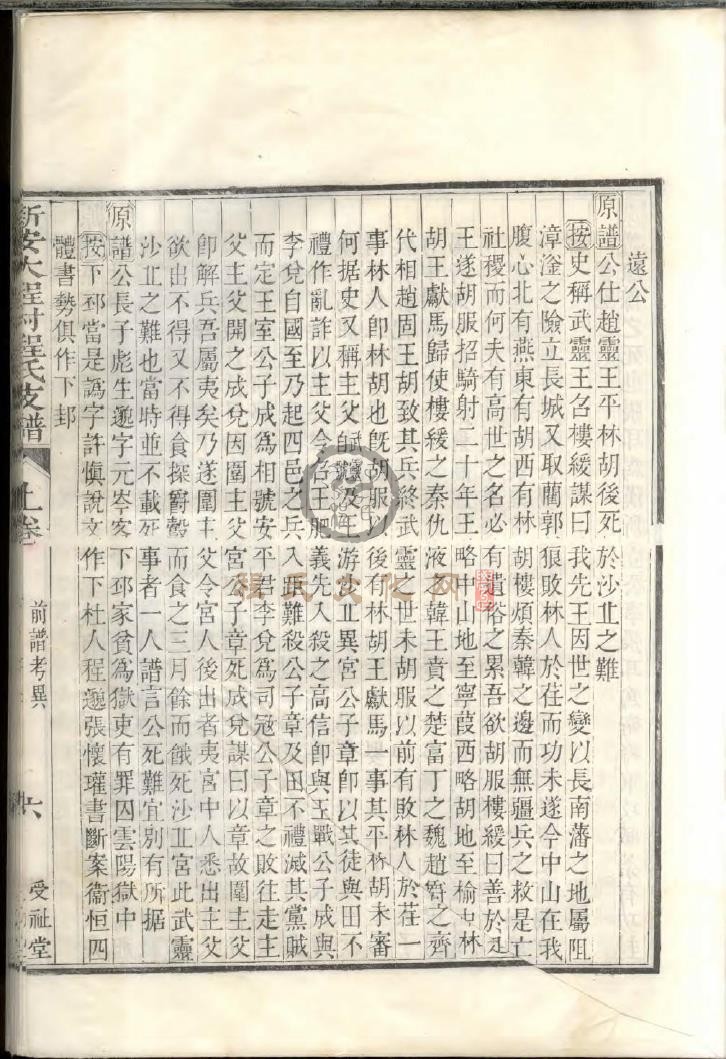 遠公
原譜公仕趙靈王平林胡後死於沙丘之難
按史稱武靈王召樓緩謀曰我先王因世之變以長南藩之地屬阻
漳滏之險立長城又取藺郭狼敗林人於荏而功未遂今中山在我
腹心北有燕東有胡西有林胡樓煩秦韓之邊而無疆兵之救是亡
社稷而何夫有高世之名必有遺俗之累吾欲胡服樓緩曰善於是
王遂胡服招騎射二十年王略中山地至寧葭西略胡地至榆中林
胡王獻馬歸使樓緩之秦仇液之韓王賁之楚富丁之魏趙爵之齊
代相趙固王胡致其兵終武靈之世未胡服以前有敗林人於荏一
事林人卽林胡也旣胡服以後有林胡王獻馬一事其平林胡未審
何据史又稱主父武靈自號及王游沙丘異宮公子章卽以其徒與田不
禮作亂詐以主父令召王肥義先入殺之高信卽與王戰公子成與
李兌自國至乃起四邑之兵入距難殺公子章及田不禮滅其黨賊
而定王室公子成爲相號安平君李兌爲司寇公子章之敗往走主
父主父開之成兌因圍主父宮公子章死成兌謀曰以章故圍主父
卽解兵吾屬夷矣乃遂圍主父令宮人後出者夷宮中人悉出主父
欲出不得又不得食探爵鷇而食之三月餘而餓死沙丘宮此武靈
沙丘之難也當時並不載死事者一人譜言公死難宜別有所據
原譜公長子彪生邈字元岑客下邳家貧爲獄吏有罪囚雲陽獄中
按下邳當是譌字許愼說文作下杜人程邈張懷瓘書斷案衞恒四
體書勢俱作下邽
新安大程村程氏支譜 上卷 前譜考異 六 受祉堂
程氏文化网